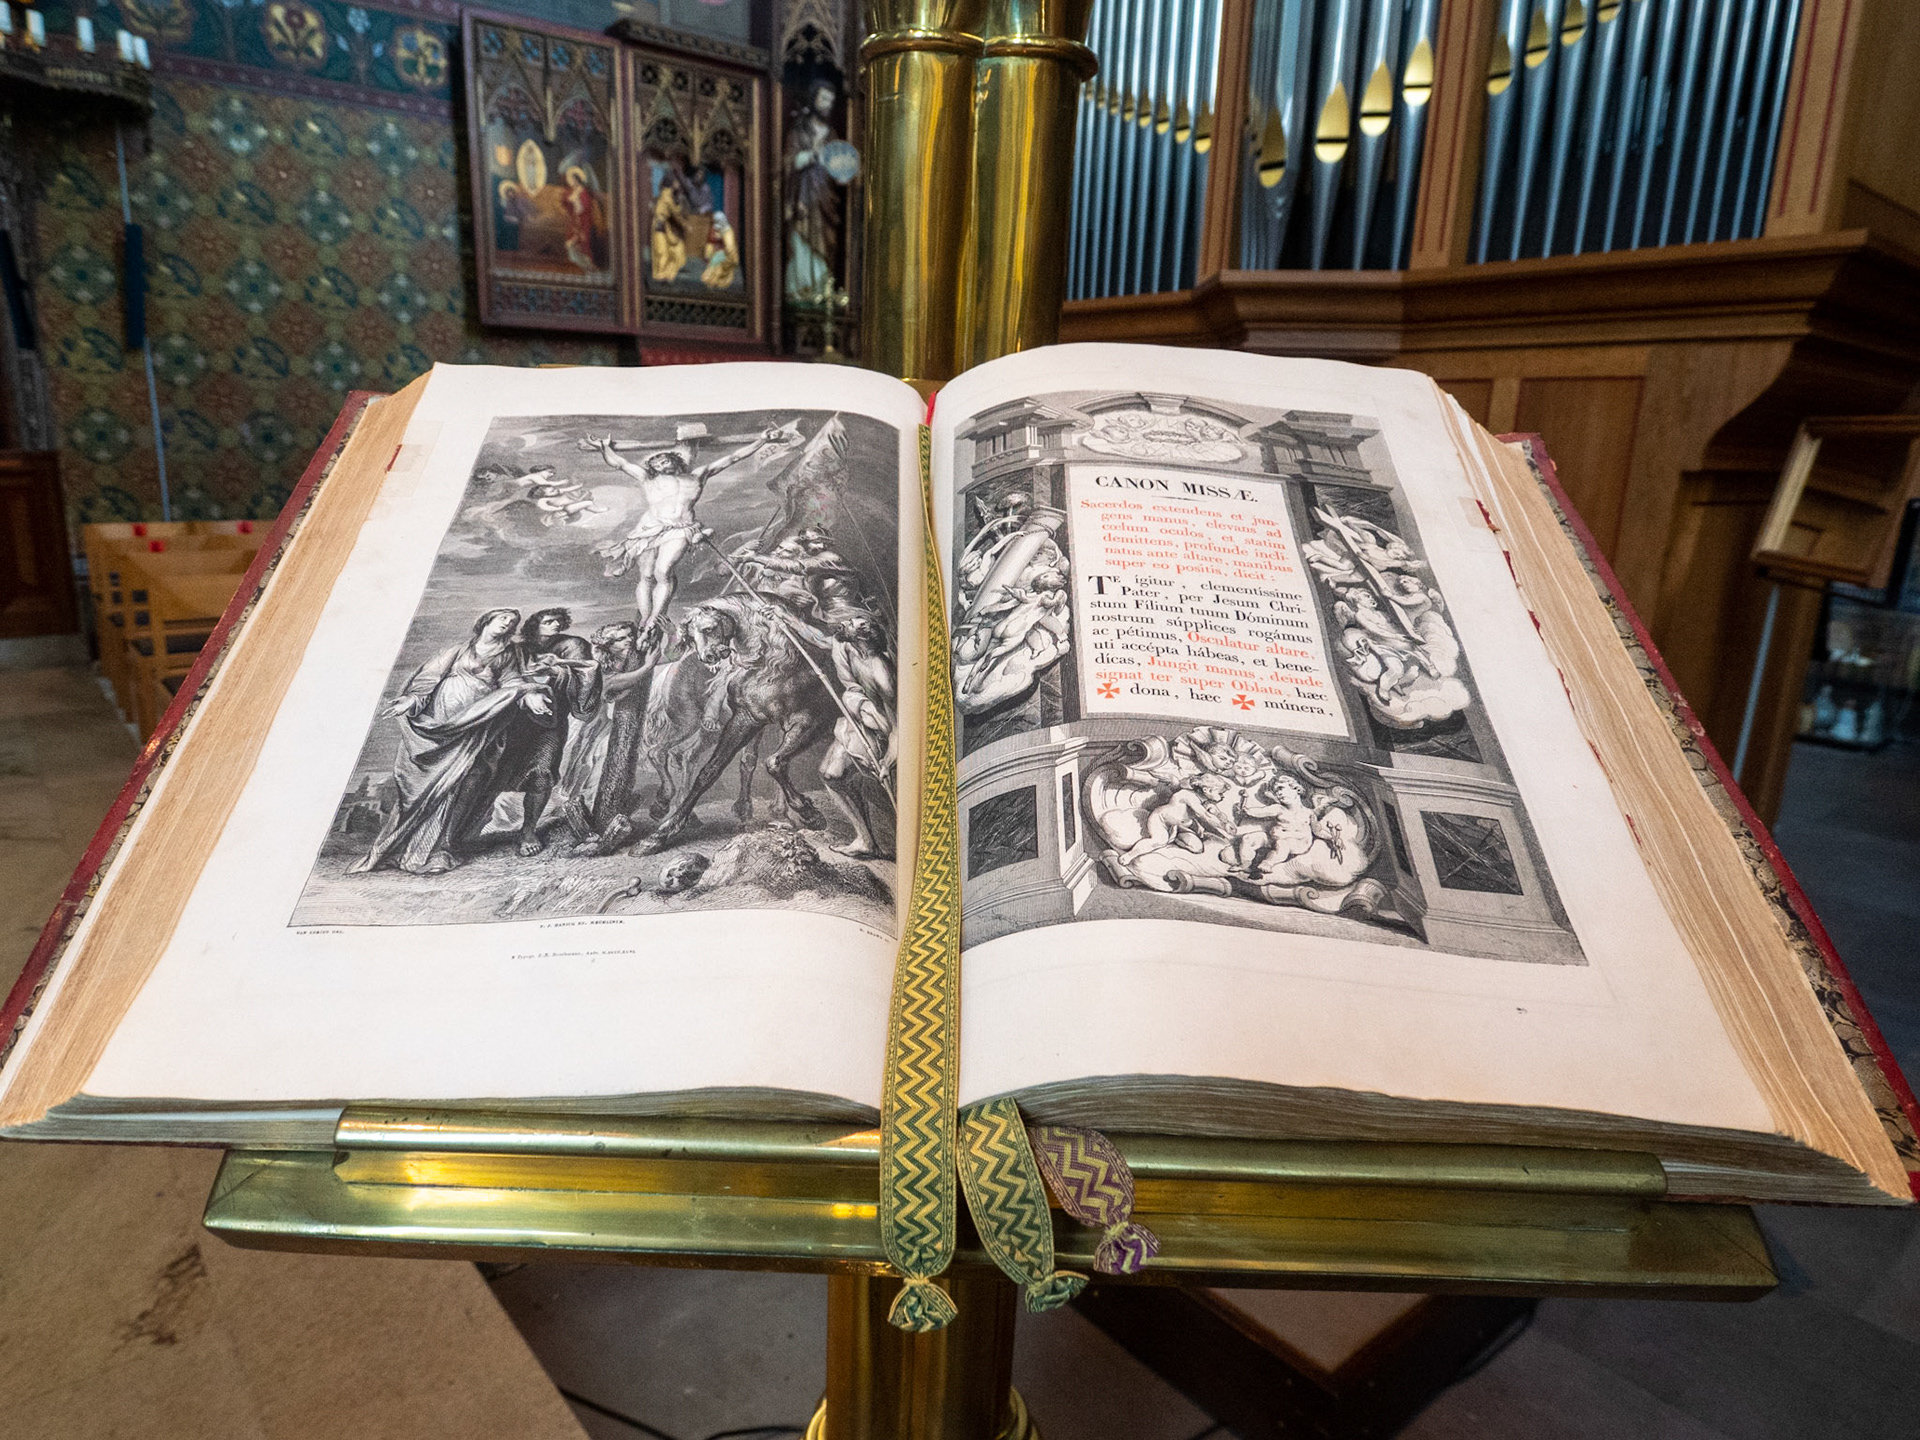 VAN LOMINO DEL.
P. J. HANICQ ED. MECHLINIÆ.
CANON MISSÆ.
Sacerdos extendens et jun-
gens manus, elevans ad
cœlum oculos, et statim
demittens, profunde incli-
natus ante altare, manibus
super eo positis, dicit :
TE ígitur, clementíssime
Pater, per Jesum Chri-
stum Fílium tuum Dóminum
nostrum súpplices rogámus
ac pétimus, Osculatur altare,
uti accépta hábeas, et bene-
dícas, Jungit manus, deinde
signat ter super Oblata, hæc
✠ dona, hæc ✠ múnera,